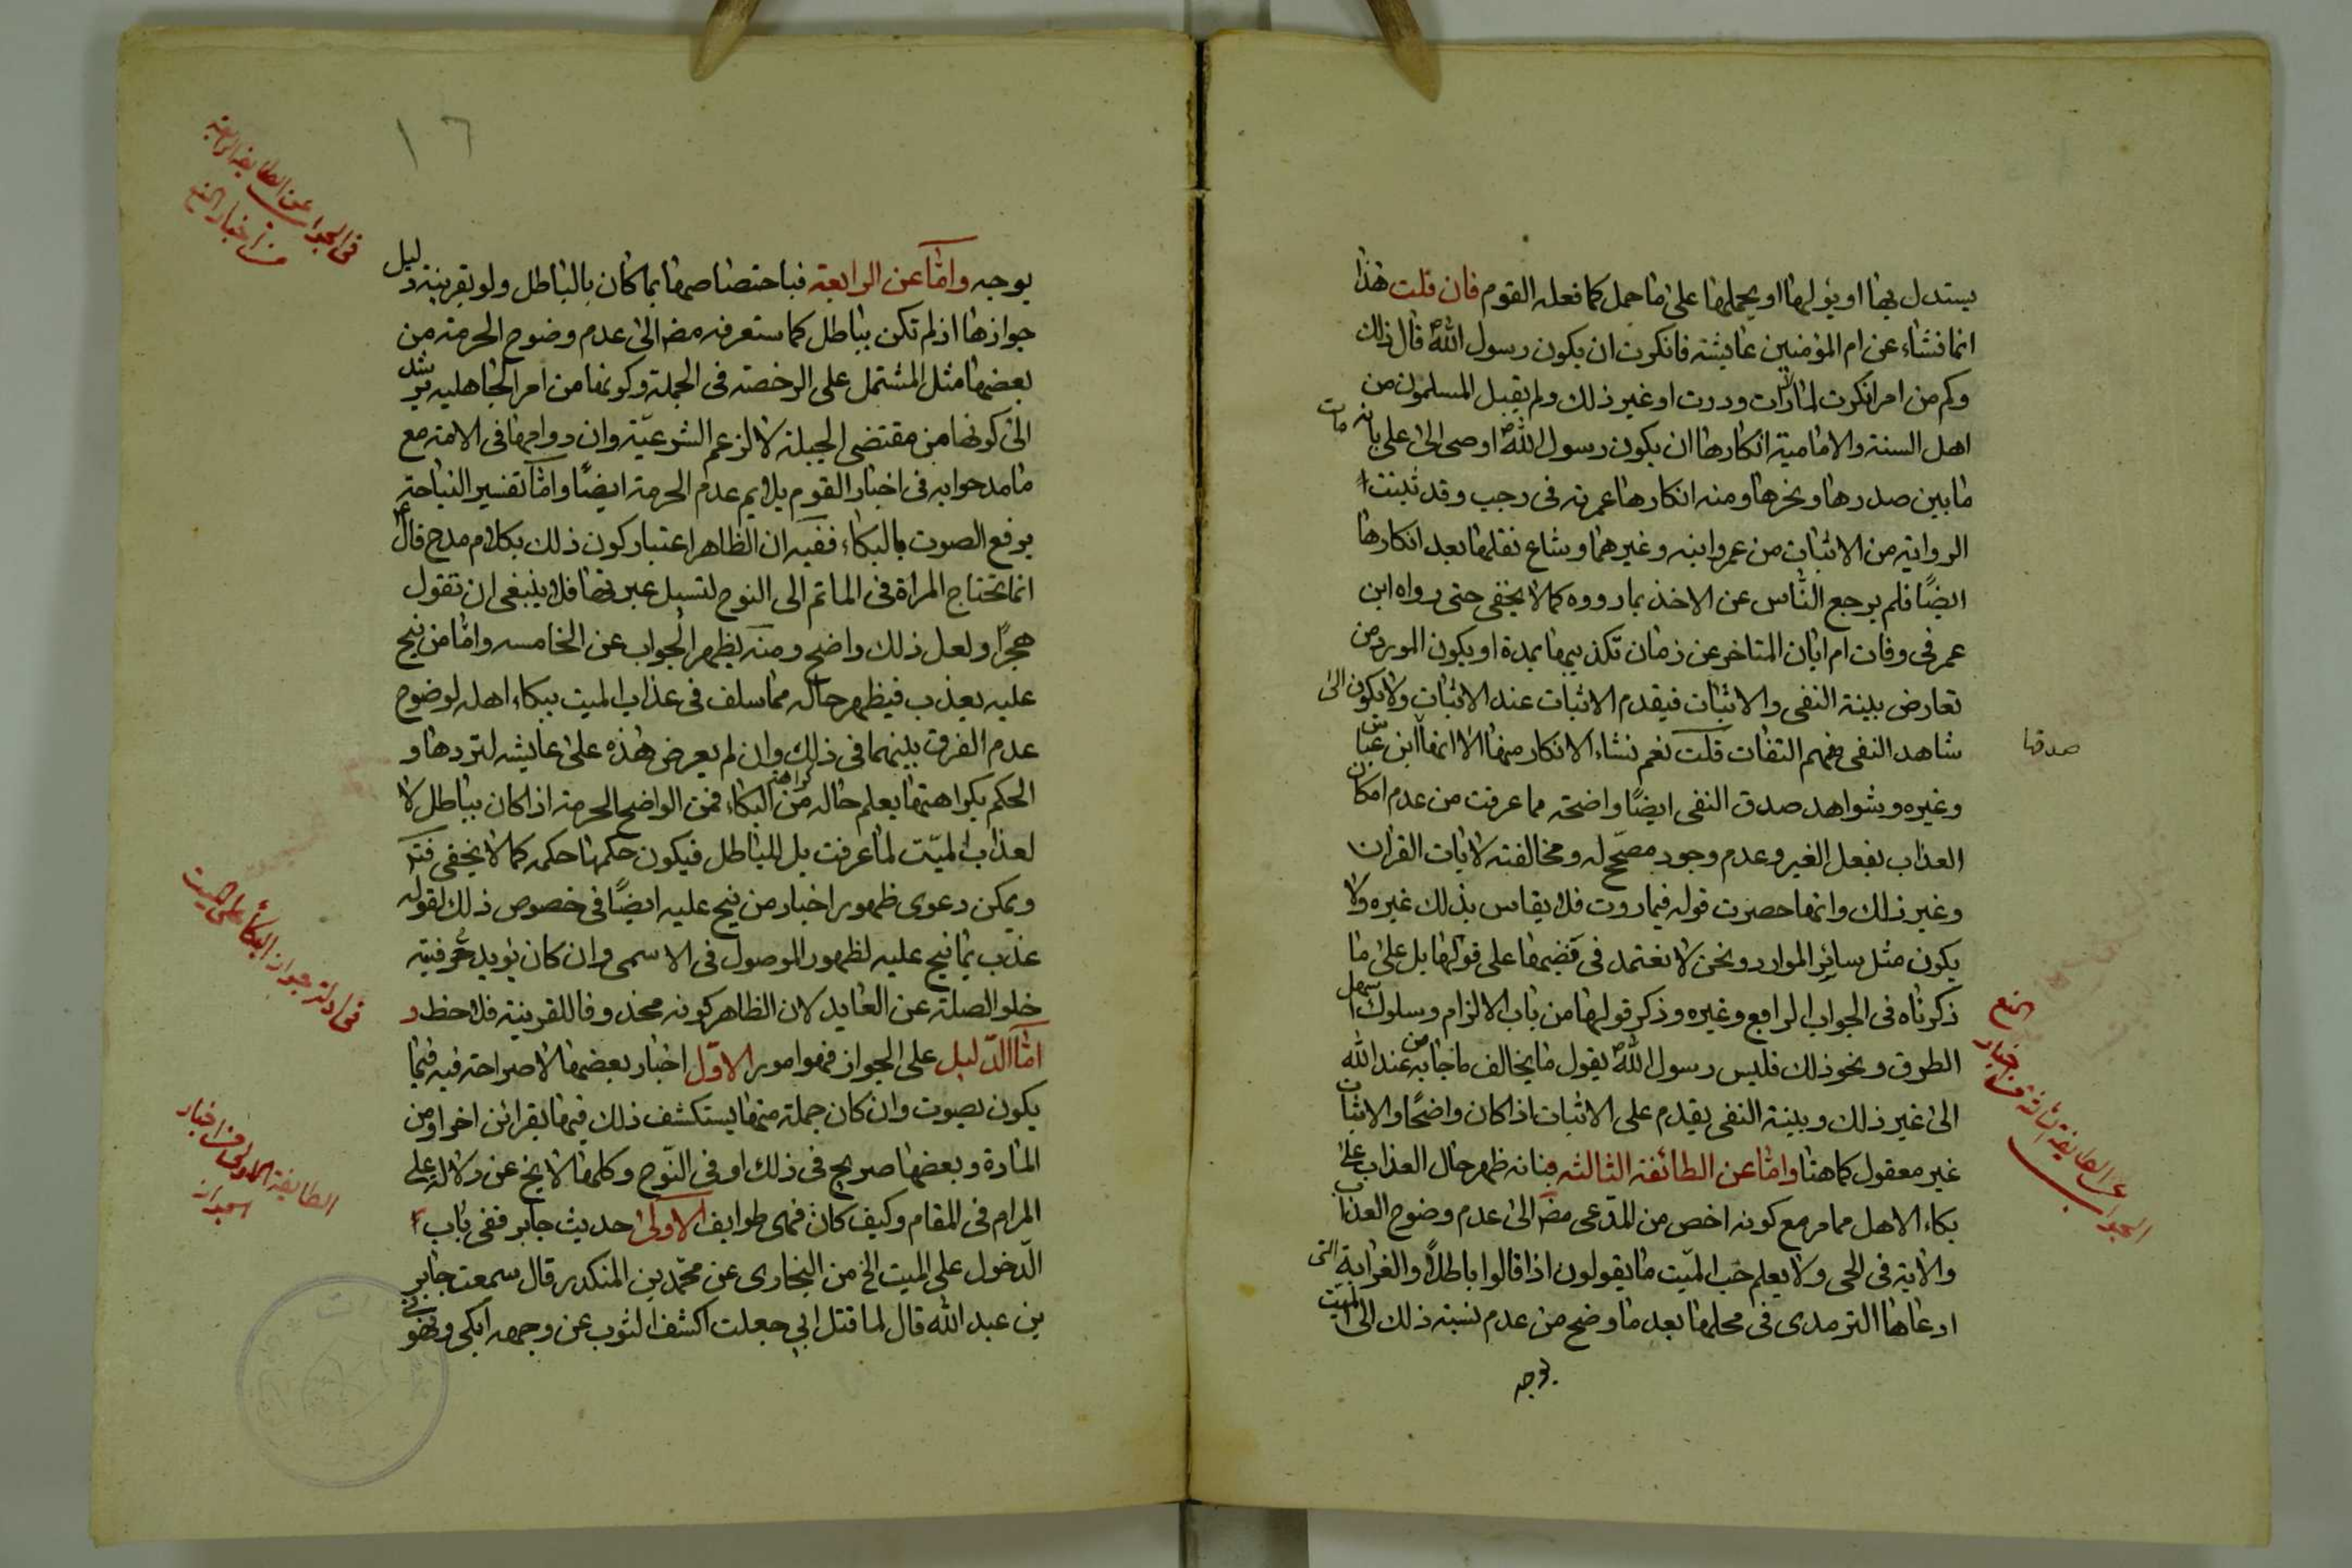 يستدل بها او يؤلها او يحملها على ما حمل كما فعله القوم فان قلت هذا
انما نشاء عن ام المؤمنين عايشة فانكرت ان يكون رسول الله ص قال ذلك
وكم من امر انكرت لما رات وروت او غير ذلك ولم يقبل المسلمون من
اهل السنة والامامية انكارها ان يكون رسول الله ص اوصى الى على بانه مات
ما بين صدرها ونحرها ومنه انكارها عمرته فى رجب وقد ثبتت
الرواية من الاثبات من عمر وابنه وغيرهما وشاع نقلها بعد انكارها
ايضًا فلم يرجع الناس عن الاخذ بما رووه كما لا يخفى حتى رواه ابن
عمر فى وفات ام ابان المتاخر عن زمان تكذيبها بمدة او يكون المورد من
تعارض بينة النفى والاثبات فيقدم الاثبات عند الاثبات ولا يكون الى
شاهد النفى وفهم الثقات قلت نعم نشاء الانكار منها الا انها ابن عباس
صدقها
وغيره وشواهد صدق النفى ايضًا واضحة مما عرفت من عدم امكان
العذاب بفعل الغير وعدم وجود مصحّح له ومخالفته لايات القران
وغير ذلك وانها حصرت قوله فيما روت فلا يقاس بذلك غيره ولا
يكون مثل سائر الموارد ونحن لا نعتمد فى قضيتها على قولها بل على ما
ذكرناه فى الجواب الرابع وغيره وذكر قولها من باب الالزام وسلوك اسهل
الطرق ونحو ذلك فليس رسول الله ص يقول ما يخالف ما جا به من عند الله
الى غير ذلك وبينة النفى يقدم على الاثبات اذا كان واضحًا والاثبات
غير معقول كما هنا واما عن الطائفة الثالثه فبانه ظهر حال العذاب على
بكاء الاهل مما مر مع كونه اخص من المدّعى مضَ الى عدم وضوح العذاب
والاية فى الحى ولا يعلم حب الميّت ما يقولون اذا قالوا باطلاً والغرابة التى
ادعاها الترمدى فى محلها بعد ما وضح من عدم نسبة ذلك الى الميت
يوجه
الجواب عن الطايفة الثالثة من اخبار المنع
١٦
فى الجواب عن الطايفة الرابعة
من اخبار المنع
يوجه واما عن الرابعة فباختصاصها بما كان بالباطل ولو بقرينة دليل
جوازها اذ لم تكن بباطل كما ستعرفه مضَ الى عدم وضوح الحرمة من
بعضها مثل المشتمل على الرخصة فى الجملة وكونها من امر الجاهليه يرشد
الى كونها من مقتضى الجبلة لا لزعم الشرعيّة وان دوامها فى الامة مع
ما مدحوا به فى اخبار القوم يلايم عدم الحرمة ايضًا واما تفسير النياحة
برفع الصوت بالبكاء ففيه ان الظاهر اعتبار كون ذلك بكلام مدح قال ع
انما تحتاج المراة فى الماتم الى النوح لتسيل عبرتها فلا ينبغى ان تقول
هجرًا ولعل ذلك واضح ومنه يظهر الجواب عن الخامسه واما من نيح
عليه يعذب فيظهر حاله مما سلف فى عذاب الميت ببكاء اهله لوضوح
عدم الفرق بينهما فى ذلك وان لم يعرض هذه على عايشه لتردها و
الحكم بكراهتها يعلم حاله من كراهة البكاء فمن الواضح الحرمة اذا كان بباطل لا
لعذاب الميّت لما عرفت بل للباطل فيكون حكمها حكمه كما لا يخفى فتد
ويمكن دعوى ظهور اخبار من نيح عليه ايضًا فى خصوص ذلك لقوله
عذب بما نيح عليه لظهور الموصول فى الاسمى وان كان يؤيد حرفيته
خلو الصلة عن العايد لان الظاهر كونه محذوفا للقرينة فلاحظ و
اما الدّليل على الجواز فهو امور الاوّل اخبار بعضها لا صراحة فيه فيما
يكون بصوت وان كان جملة منها يستكشف ذلك فيها بقرائن اخر او من
المادة وبعضها صريح فى ذلك او فى النّوح وكلها لا يخ عن دلالة على
المرام فى المقام وكيف كان فهى طوايف الاولى حديث جابر ففى باب
الدّخول على الميت الخ من البخارى عن محمّد بن المنكدر قال سمعت جابر
بن عبد الله قال لما قتل ابي جعلت اكشف الثوب عن وجهه ابكى ونهونى
فى ادلة جواز البكاء على الميت
الطايفة الاولى من اخبار
الجواز